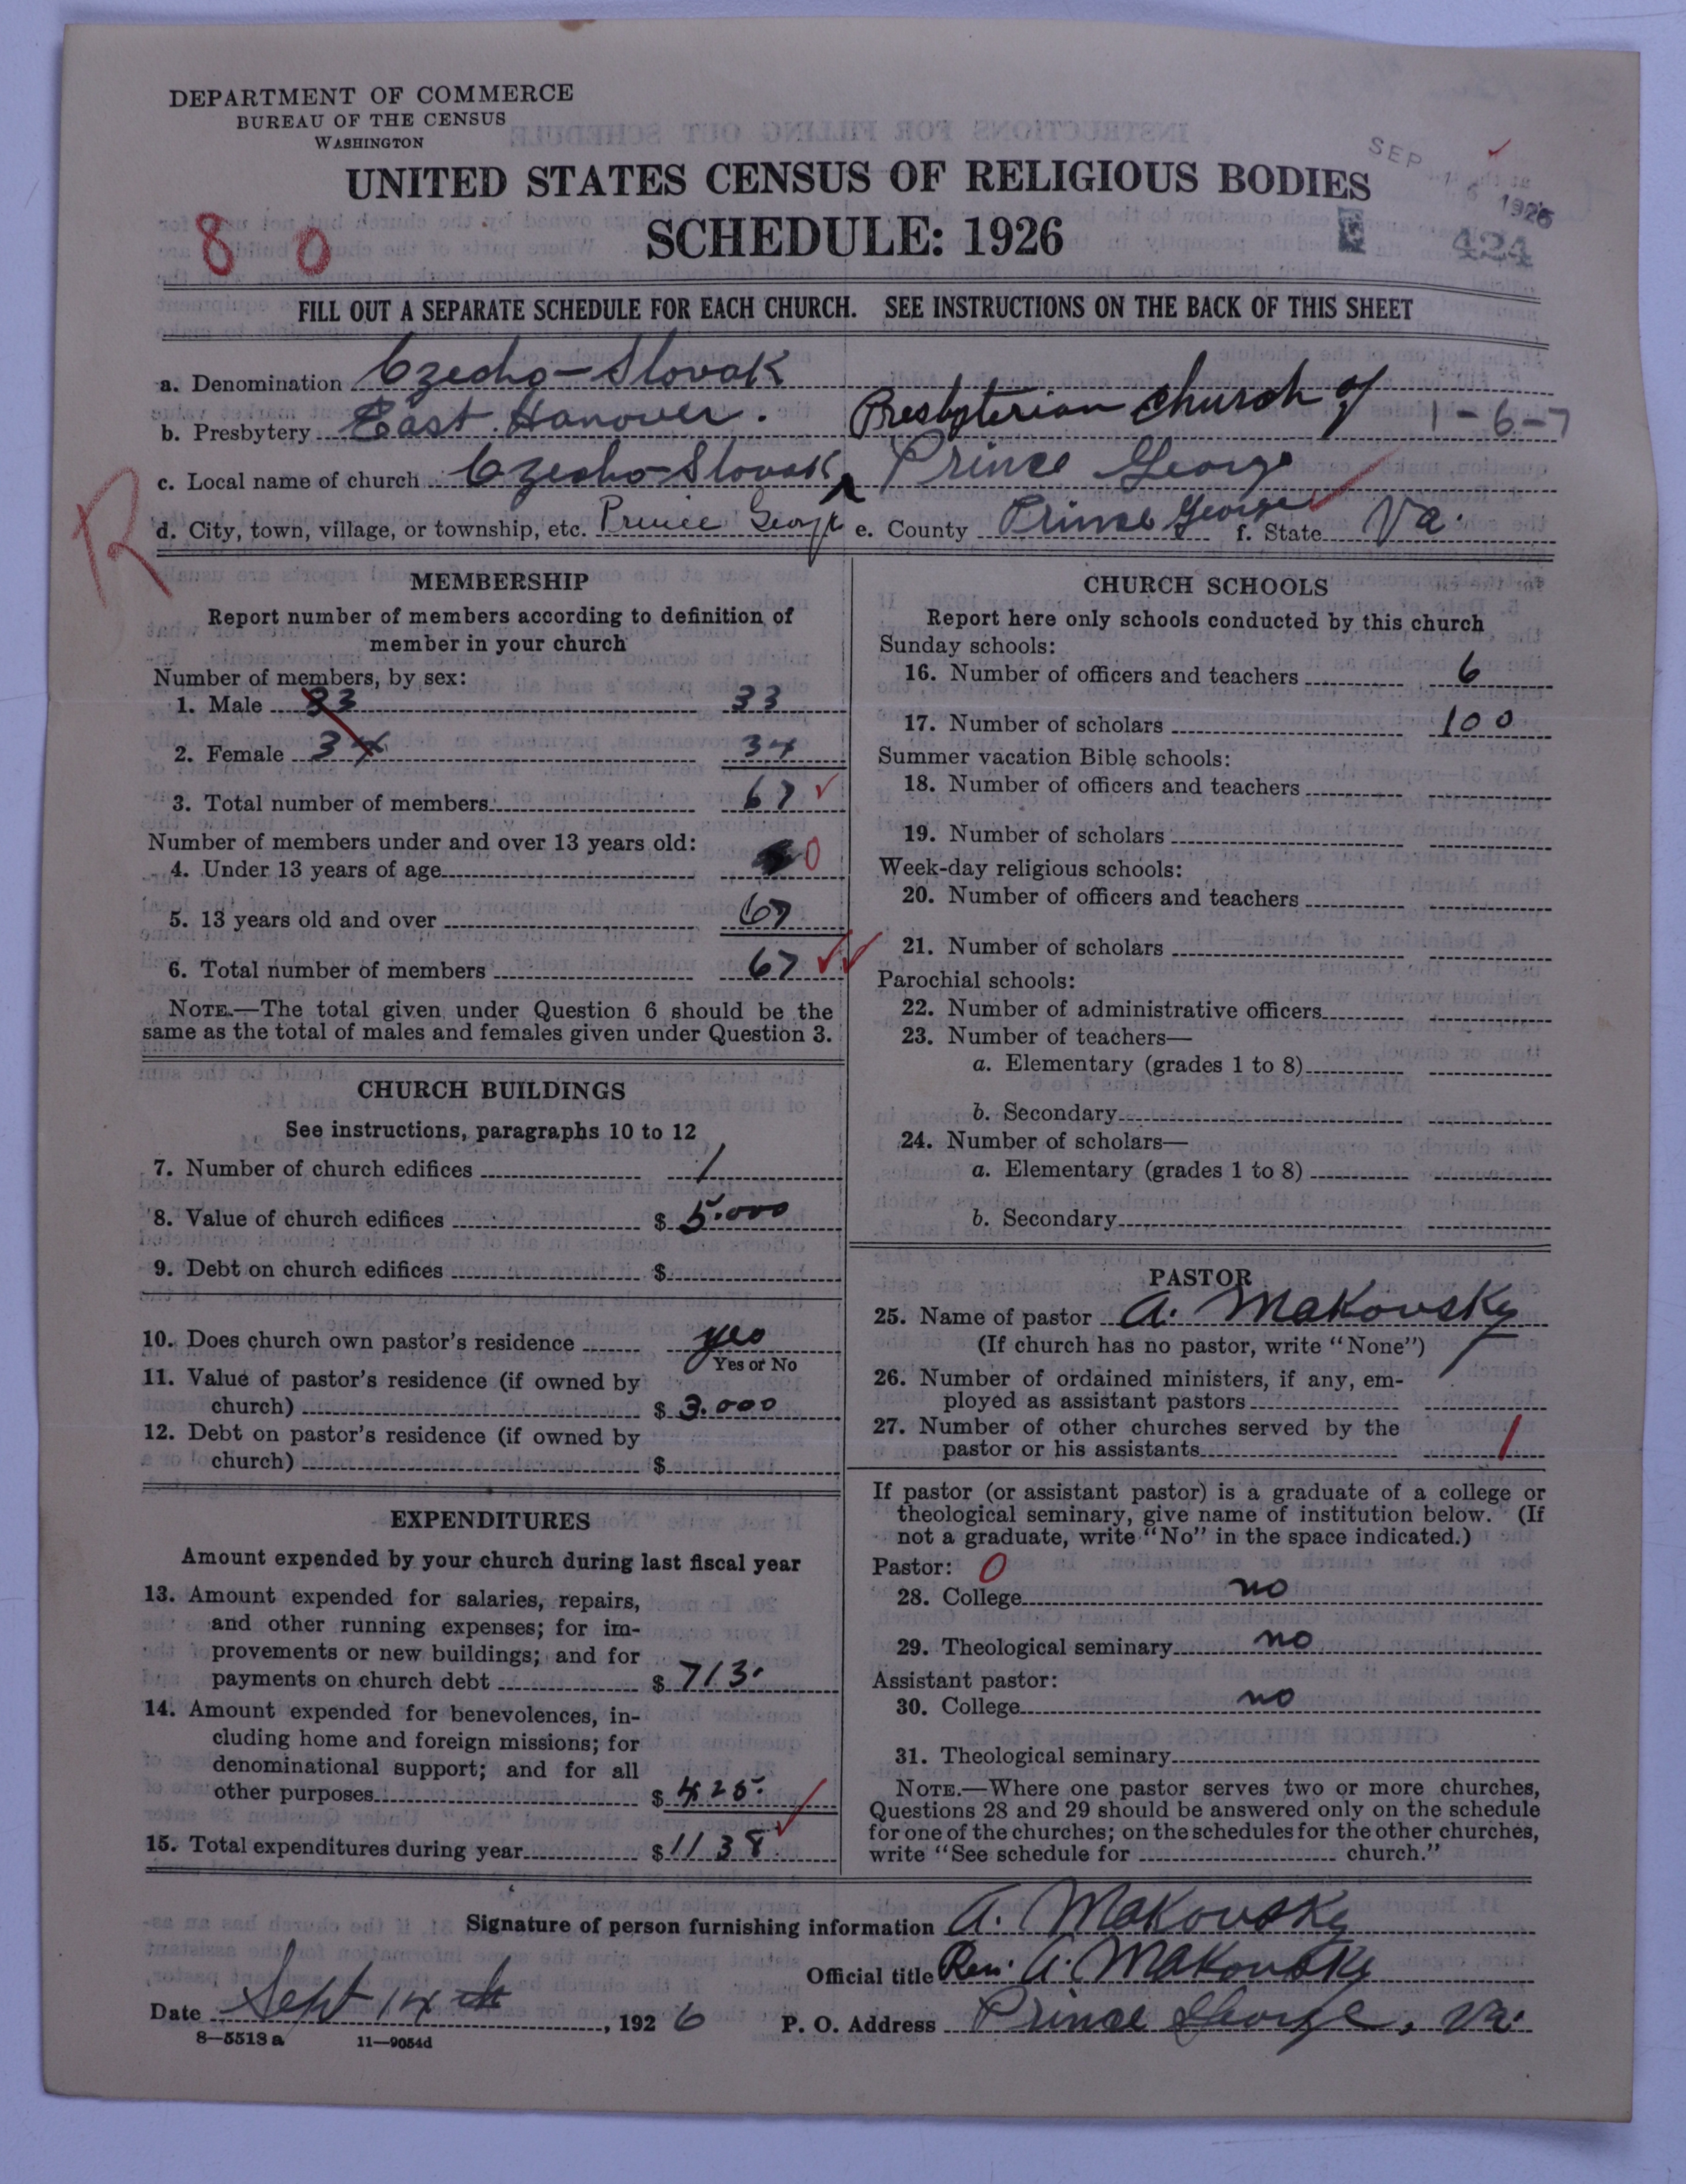 DEPARTMENT OF COMMERCE
BUREAU OF THE CENSUS
WASHINGTON
UNITED STATES CENSUS OF RELIGIOUS BODIES
SCHEDULE: 1926
SEP 16 1926
424
8 0
FILL OUT A SEPARATE SCHEDULE FOR EACH CHURCH. SEE INSTRUCTIONS ON THE BACK OF THIS SHEET
a. Denomination Czecho-Slovak
b. Presbytery East Hanover. Presbyterian church of 1-6-7
c. Local name of church Czecho-Slovak ^ Prince George
R
d. City, town, village, or township, etc. Prince George e. County Prince George f. State Va.
MEMBERSHIP
Report number of members according to definition of
member in your church
Number of members, by sex:
1. Male 33 33
2. Female 34 34
3. Total number of members 67
Number of members under and over 13 years old:
4. Under 13 years of age 0
5. 13 years old and over 67
6. Total number of members 67
NOTE.—The total given under Question 6 should be the
same as the total of males and females given under Question 3.
CHURCH BUILDINGS
See instructions, paragraphs 10 to 12
7. Number of church edifices 1
8. Value of church edifices $ 5.000
9. Debt on church edifices $
10. Does church own pastor's residence yes
Yes or No
11. Value of pastor's residence (if owned by
church) $ 3.000
12. Debt on pastor's residence (if owned by
church) $
EXPENDITURES
Amount expended by your church during last fiscal year
13. Amount expended for salaries, repairs,
and other running expenses; for im-
provements or new buildings; and for
payments on church debt $ 713.
14. Amount expended for benevolences, in-
cluding home and foreign missions; for
denominational support; and for all
other purposes $ 425.
15. Total expenditures during year $ 1138.
CHURCH SCHOOLS
Report here only schools conducted by this church
Sunday schools:
16. Number of officers and teachers 6
17. Number of scholars 100
Summer vacation Bible schools:
18. Number of officers and teachers
19. Number of scholars
Week-day religious schools:
20. Number of officers and teachers
21. Number of scholars
Parochial schools:
22. Number of administrative officers
23. Number of teachers—
a. Elementary (grades 1 to 8)
b. Secondary
24. Number of scholars—
a. Elementary (grades 1 to 8)
b. Secondary
PASTOR
25. Name of pastor A. Makovsky
(If church has no pastor, write "None")
26. Number of ordained ministers, if any, em-
ployed as assistant pastors
27. Number of other churches served by the
pastor or his assistants 1
If pastor (or assistant pastor) is a graduate of a college or
theological seminary, give name of institution below. (If
not a graduate, write "No" in the space indicated.)
Pastor: 0
28. College no
29. Theological seminary no
Assistant pastor:
30. College no
31. Theological seminary
NOTE.—Where one pastor serves two or more churches,
Questions 28 and 29 should be answered only on the schedule
for one of the churches; on the schedules for the other churches,
write "See schedule for church."
Signature of person furnishing information A. Makovsky
Official title Rev. A. Makovsky
Date Sept 14th, 1926 P. O. Address Prince George, Va.
8—5518 a 11—9054d